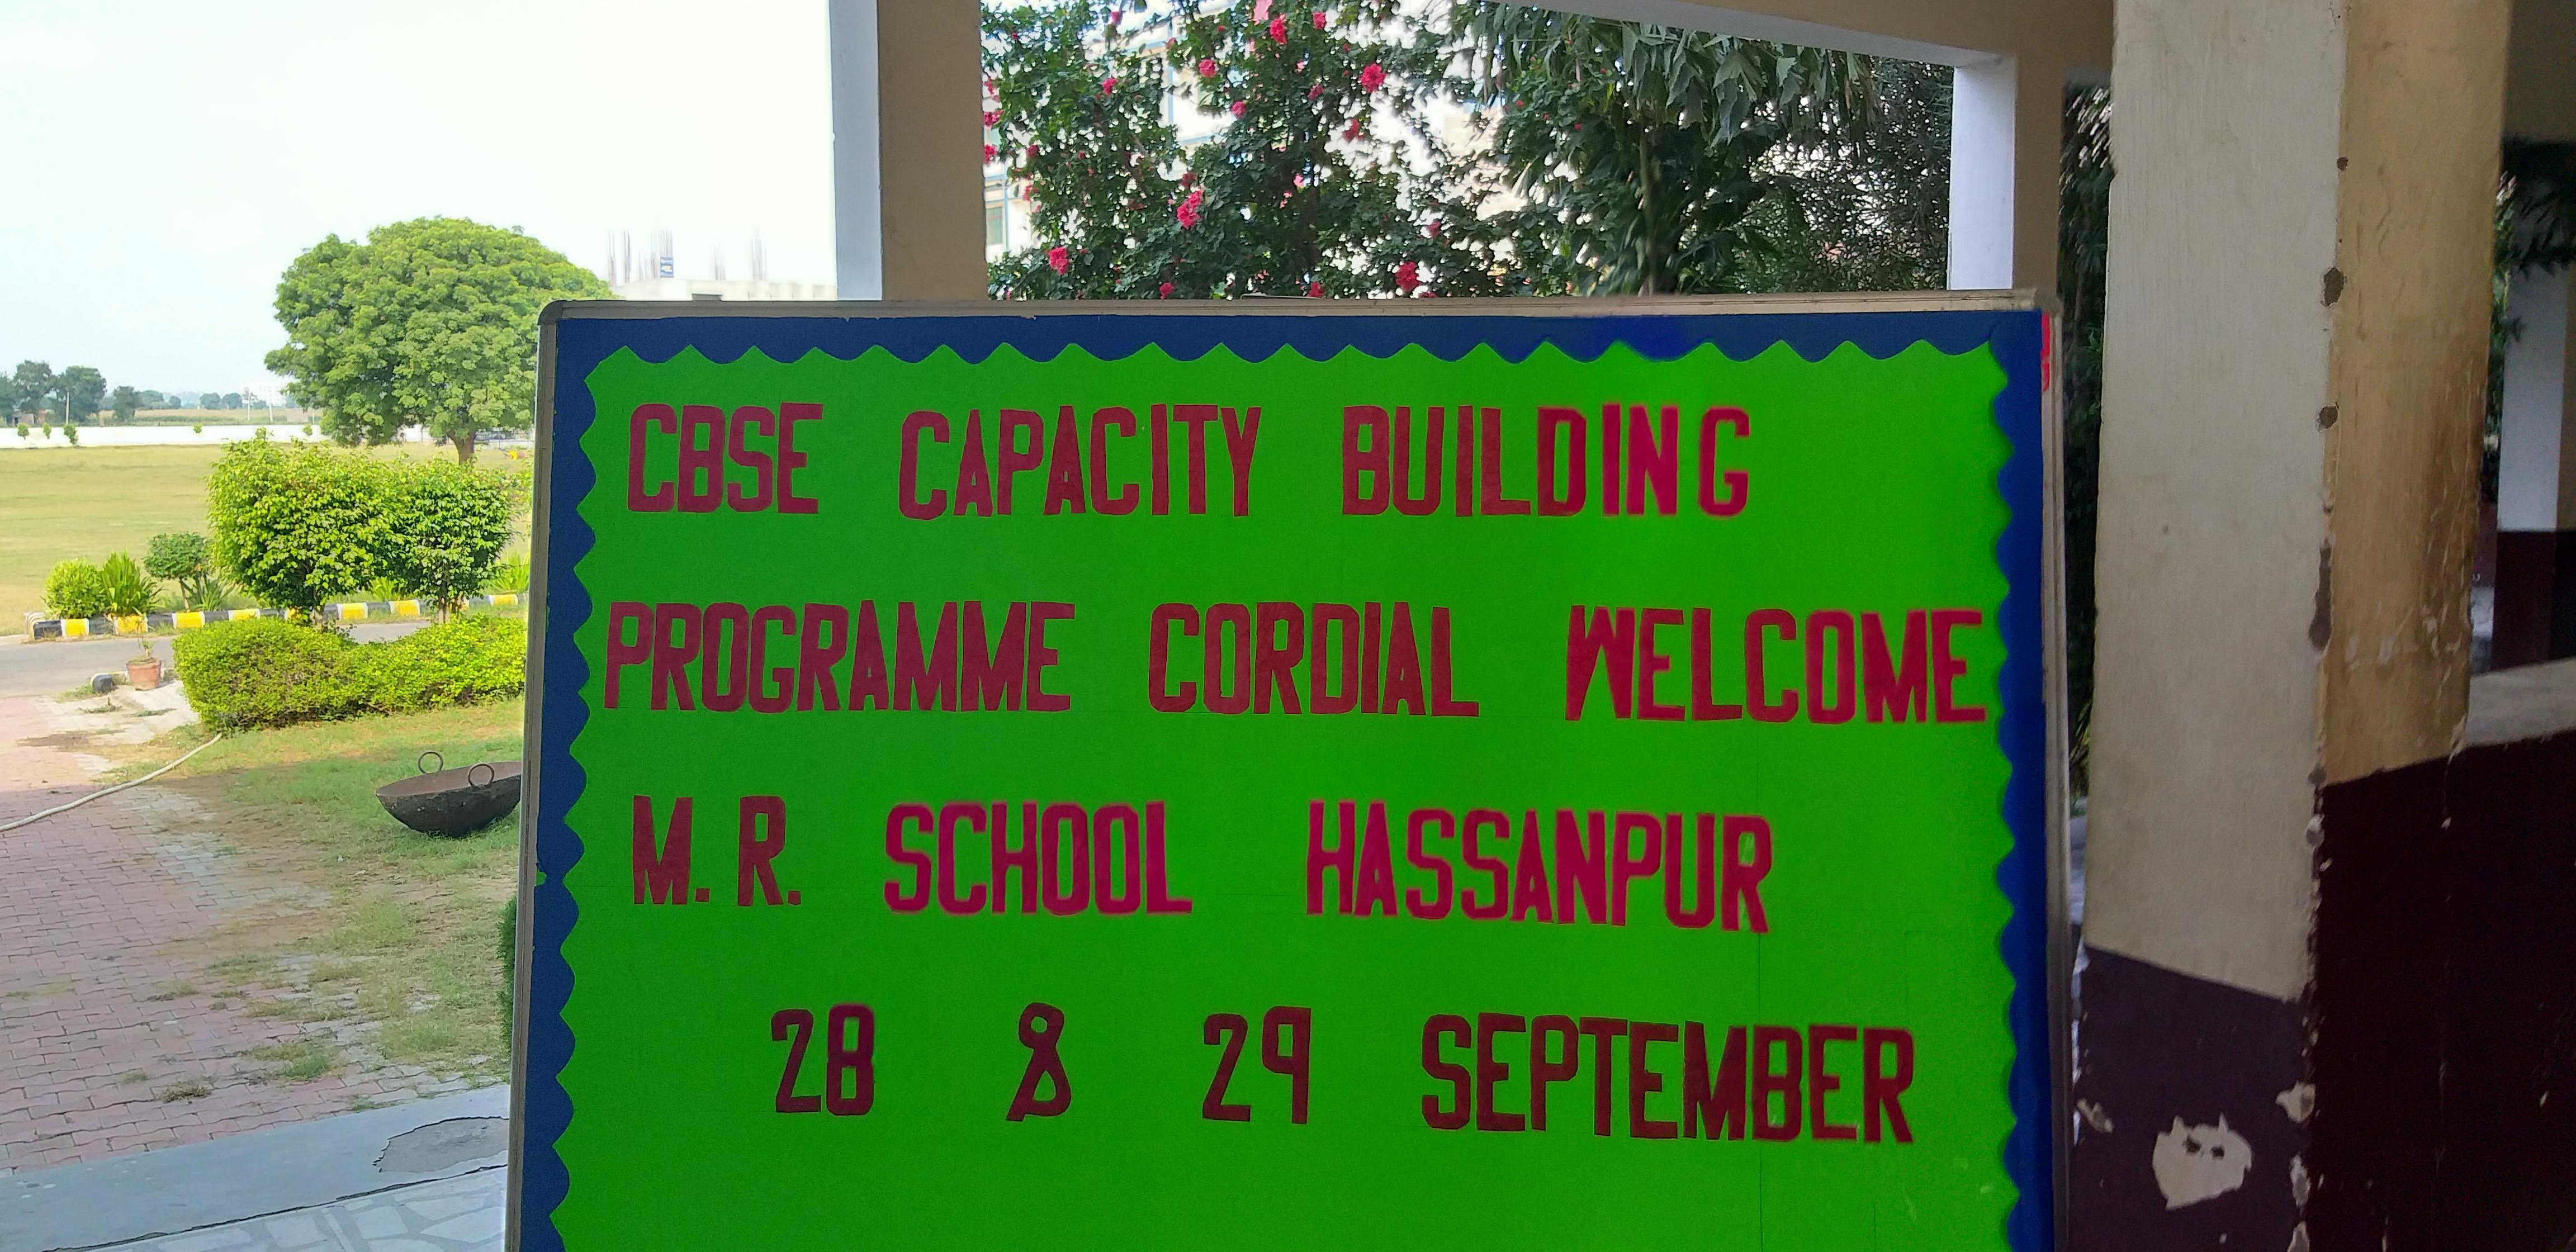 CBSE CAPACITY BUILDING
PROGRAMME CORDIAL WELCOME
M.R. SCHOOL HASSANPUR
28 & 29 SEPTEMBER